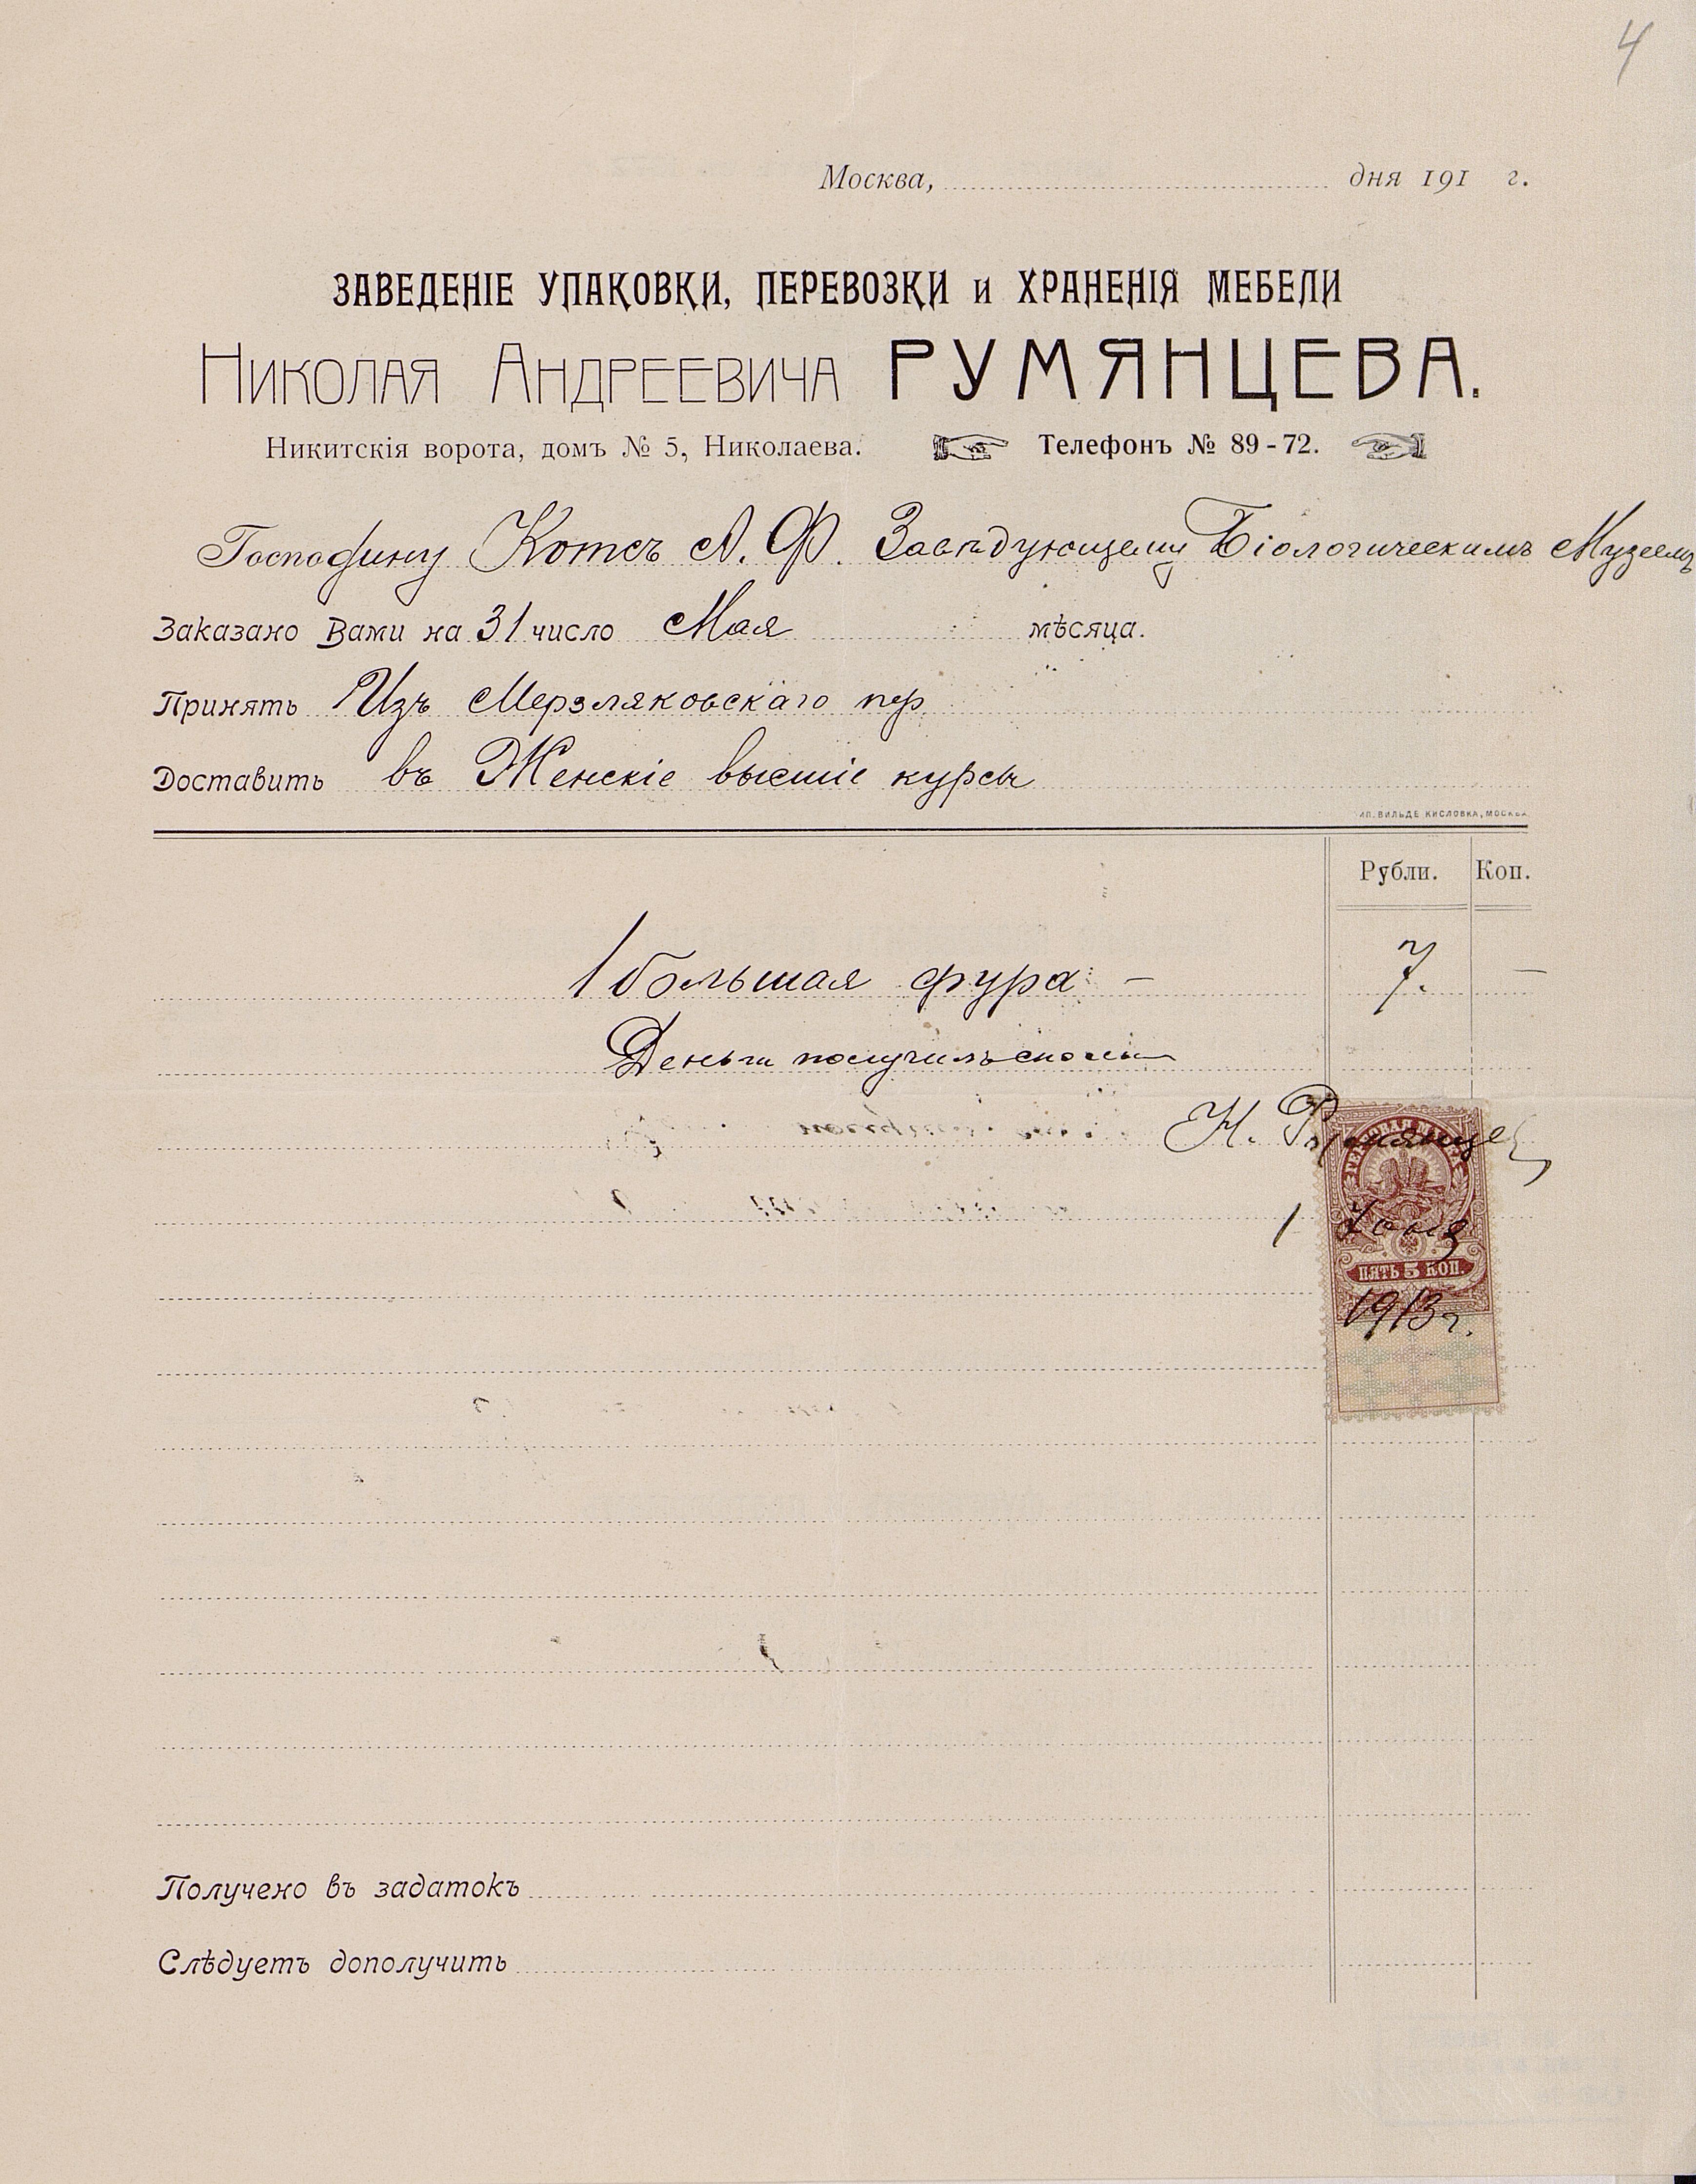 4
Москва, дня 191 г.
ЗАВЕДЕНІЕ УПАКОВКИ, ПЕРЕВОЗКИ и ХРАНЕНІЯ МЕБЕЛИ
Николая Андреевича РУМЯНЦЕВА.
Никитскія ворота, домъ № 5, Николаева. Телефонъ № 89-72.
Господину Котсъ А. Ф. Завѣдующему Біологическимъ Музеемъ
Заказано Вами на 31 число Мая мѣсяца.
Принять Изъ Мерзляковскаго пер.
Доставить въ Женскіе высшіе курсы
ВИЛЬДЕ КИСЛОВКА, МОСКВА
Рубли. Коп.
1 большая фура — 7. —
Деньги получилъ сполна
Н. Румянцев
ГЕРБОВАЯ МАРКА
1 Іюня
ПЯТЬ 5 КОП.
1913 г.
Получено въ задатокъ
Слѣдуетъ дополучить